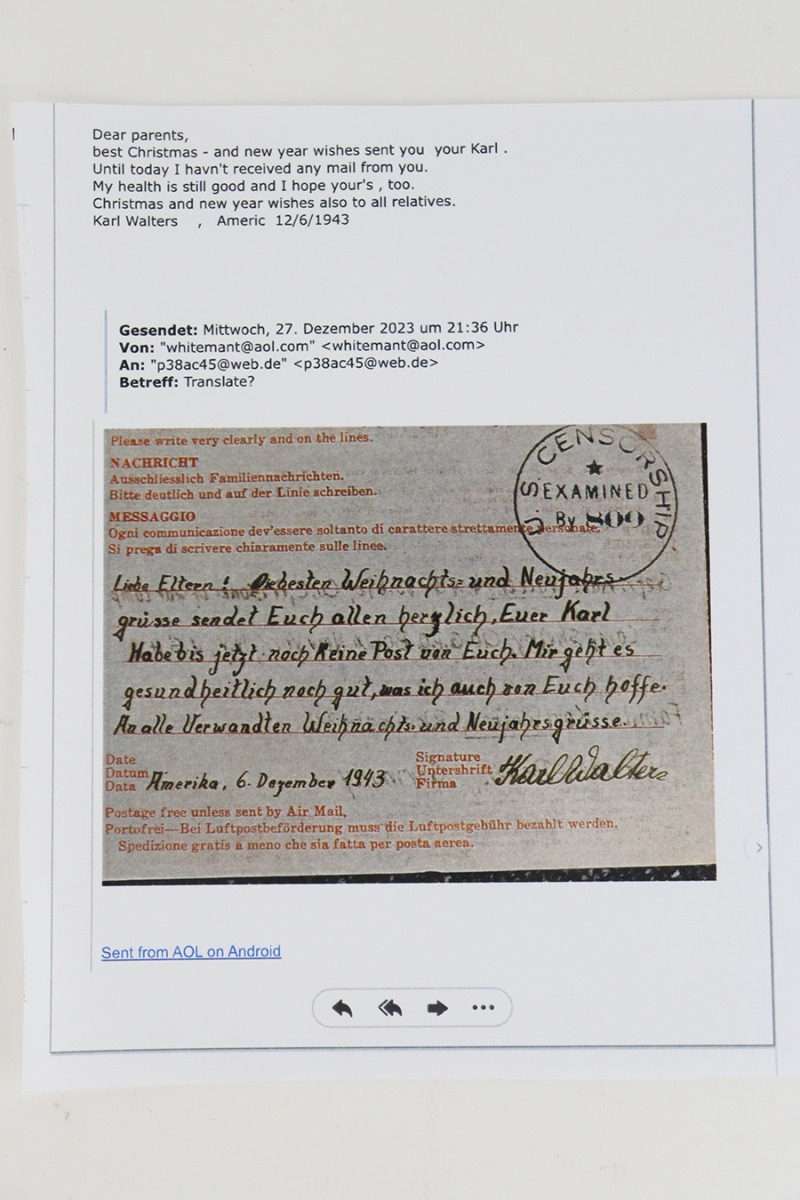 Dear parents,
best Christmas - and new year wishes sent you your Karl .
Until today I havn't received any mail from you.
My health is still good and I hope your's , too.
Christmas and new year wishes also to all relatives.
Karl Walters , Americ 12/6/1943
Gesendet: Mittwoch, 27. Dezember 2023 um 21:36 Uhr
Von: "whitemant@aol.com" <whitemant@aol.com>
An: "p38ac45@web.de" <p38ac45@web.de>
Betreff: Translate?
Please write very clearly and on the lines.
NACHRICHT
Ausschliesslich Familiennachrichten.
Bitte deutlich und auf der Linie schreiben.
MESSAGGIO
Ogni communicazione dev'essere soltanto di carattere strettamente personale.
Si prega di scrivere chiaramente sulle linee.
U.S. CENSORSHIP
EXAMINED
By 800
Liebe Eltern! Die besten Weihnachts= und Neujahrs-
grüsse sendet Euch allen herzlich, Euer Karl
Habe bis jetzt noch Keine Post von Euch. Mir geht es
gesundheitlich noch gut, was ich auch von Euch hoffe.
An alle Verwandten Weihnachts- und Neujahrsgrüsse.
Date
Datum
Data
Amerika, 6. Dezember 1943
Signature
Untershrift
Firma
Karl Walters
Postage free unless sent by Air Mail,
Portofrei—Bei Luftpostbeförderung muss die Luftpostgebühr bezahlt werden.
Spedizione gratis a meno che sia fatta per posta aerea.
Sent from AOL on Android